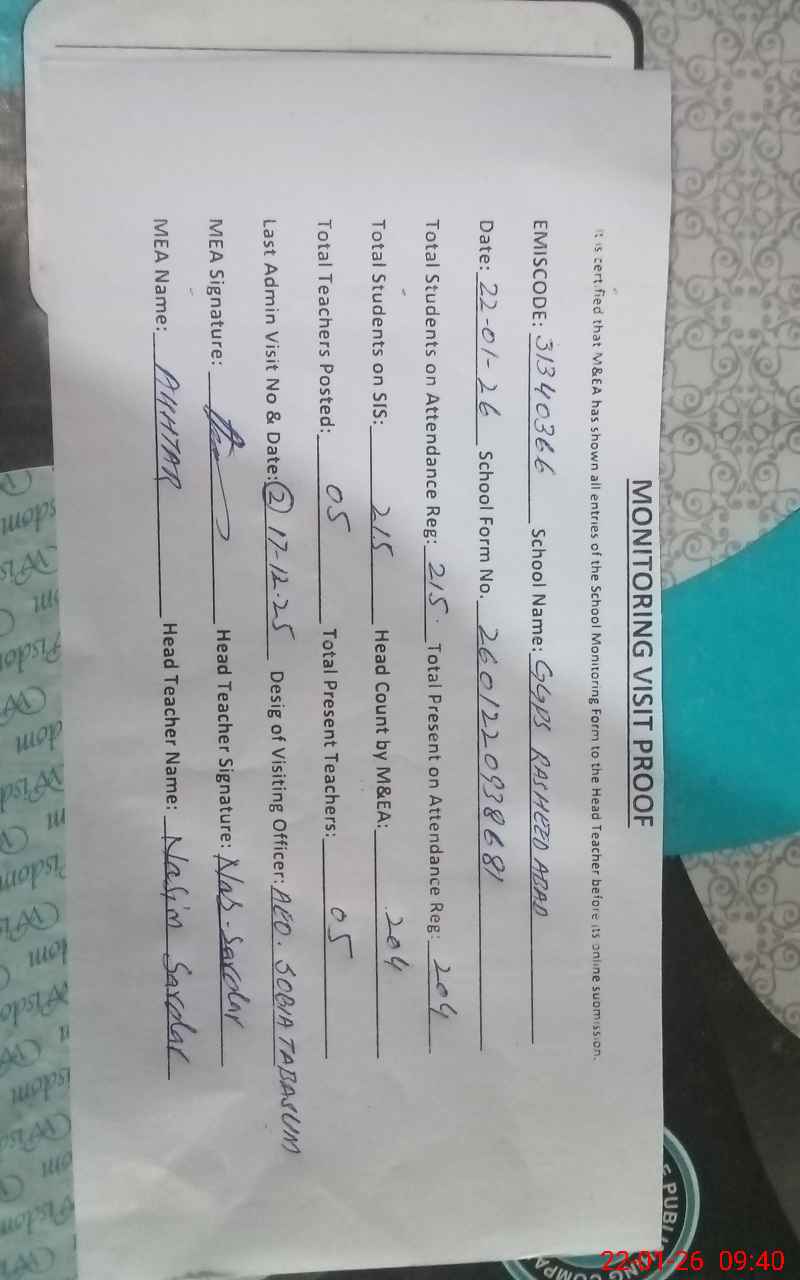 MONITORING VISIT PROOF
It is certified that M&EA has shown all entries of the School Monitoring Form to the Head Teacher before its online submission.
EMISCODE: 31340366 School Name: GGPS RASHEED ABAD
Date: 22-01-26 School Form No. 2601220938681
Total Students on Attendance Reg: 215 Total Present on Attendance Reg: 204
Total Students on SIS: 215 Head Count by M&EA: 204
Total Teachers Posted: 05 Total Present Teachers: 05
Last Admin Visit No & Date: 2 17-12-25 Desig of Visiting Officer: AEO. SOBIA TABASUM
MEA Signature: Head Teacher Signature:
MEA Name: AKHTAR Head Teacher Name: Nasim Sardar
Wisdom
PUBLISHING COMPA
22-01-26 09:40